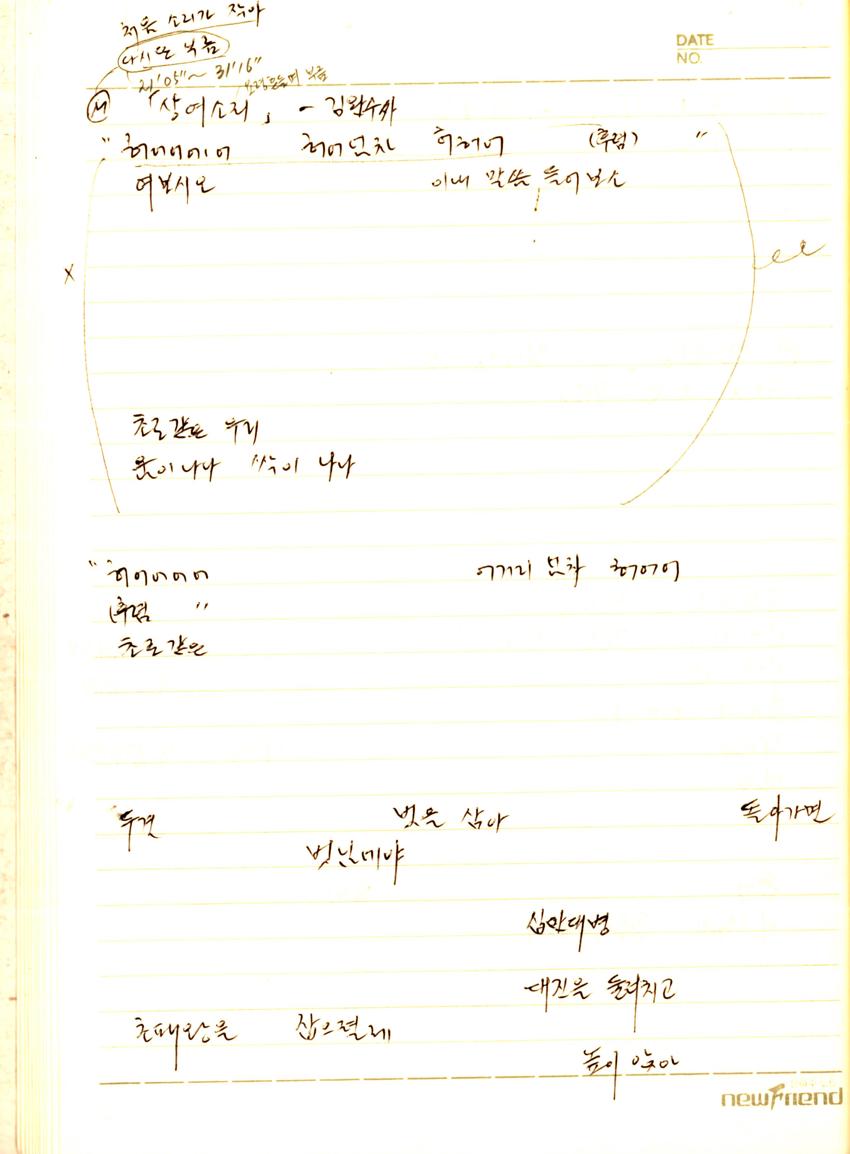 처음 소리가 작아
다시 또 녹음
DATE
NO.
21'05"~ 31'16"
M 「상여소리」 - 김
" 허어어어어 허어넘차 허허어 (후렴) "
여보시오 이내 말씀 들어보소
x
초로같은 우리
움이나나 싹이 나나
" 허어어어어 어거리 넘차 허어어
(후렴 "
초로같은
두견 벗을 삼아 돌아가면
벗님네야
십만대병
대진을 둘러치고
초패왕을 잡으렬레
높이 앉아
newFriend